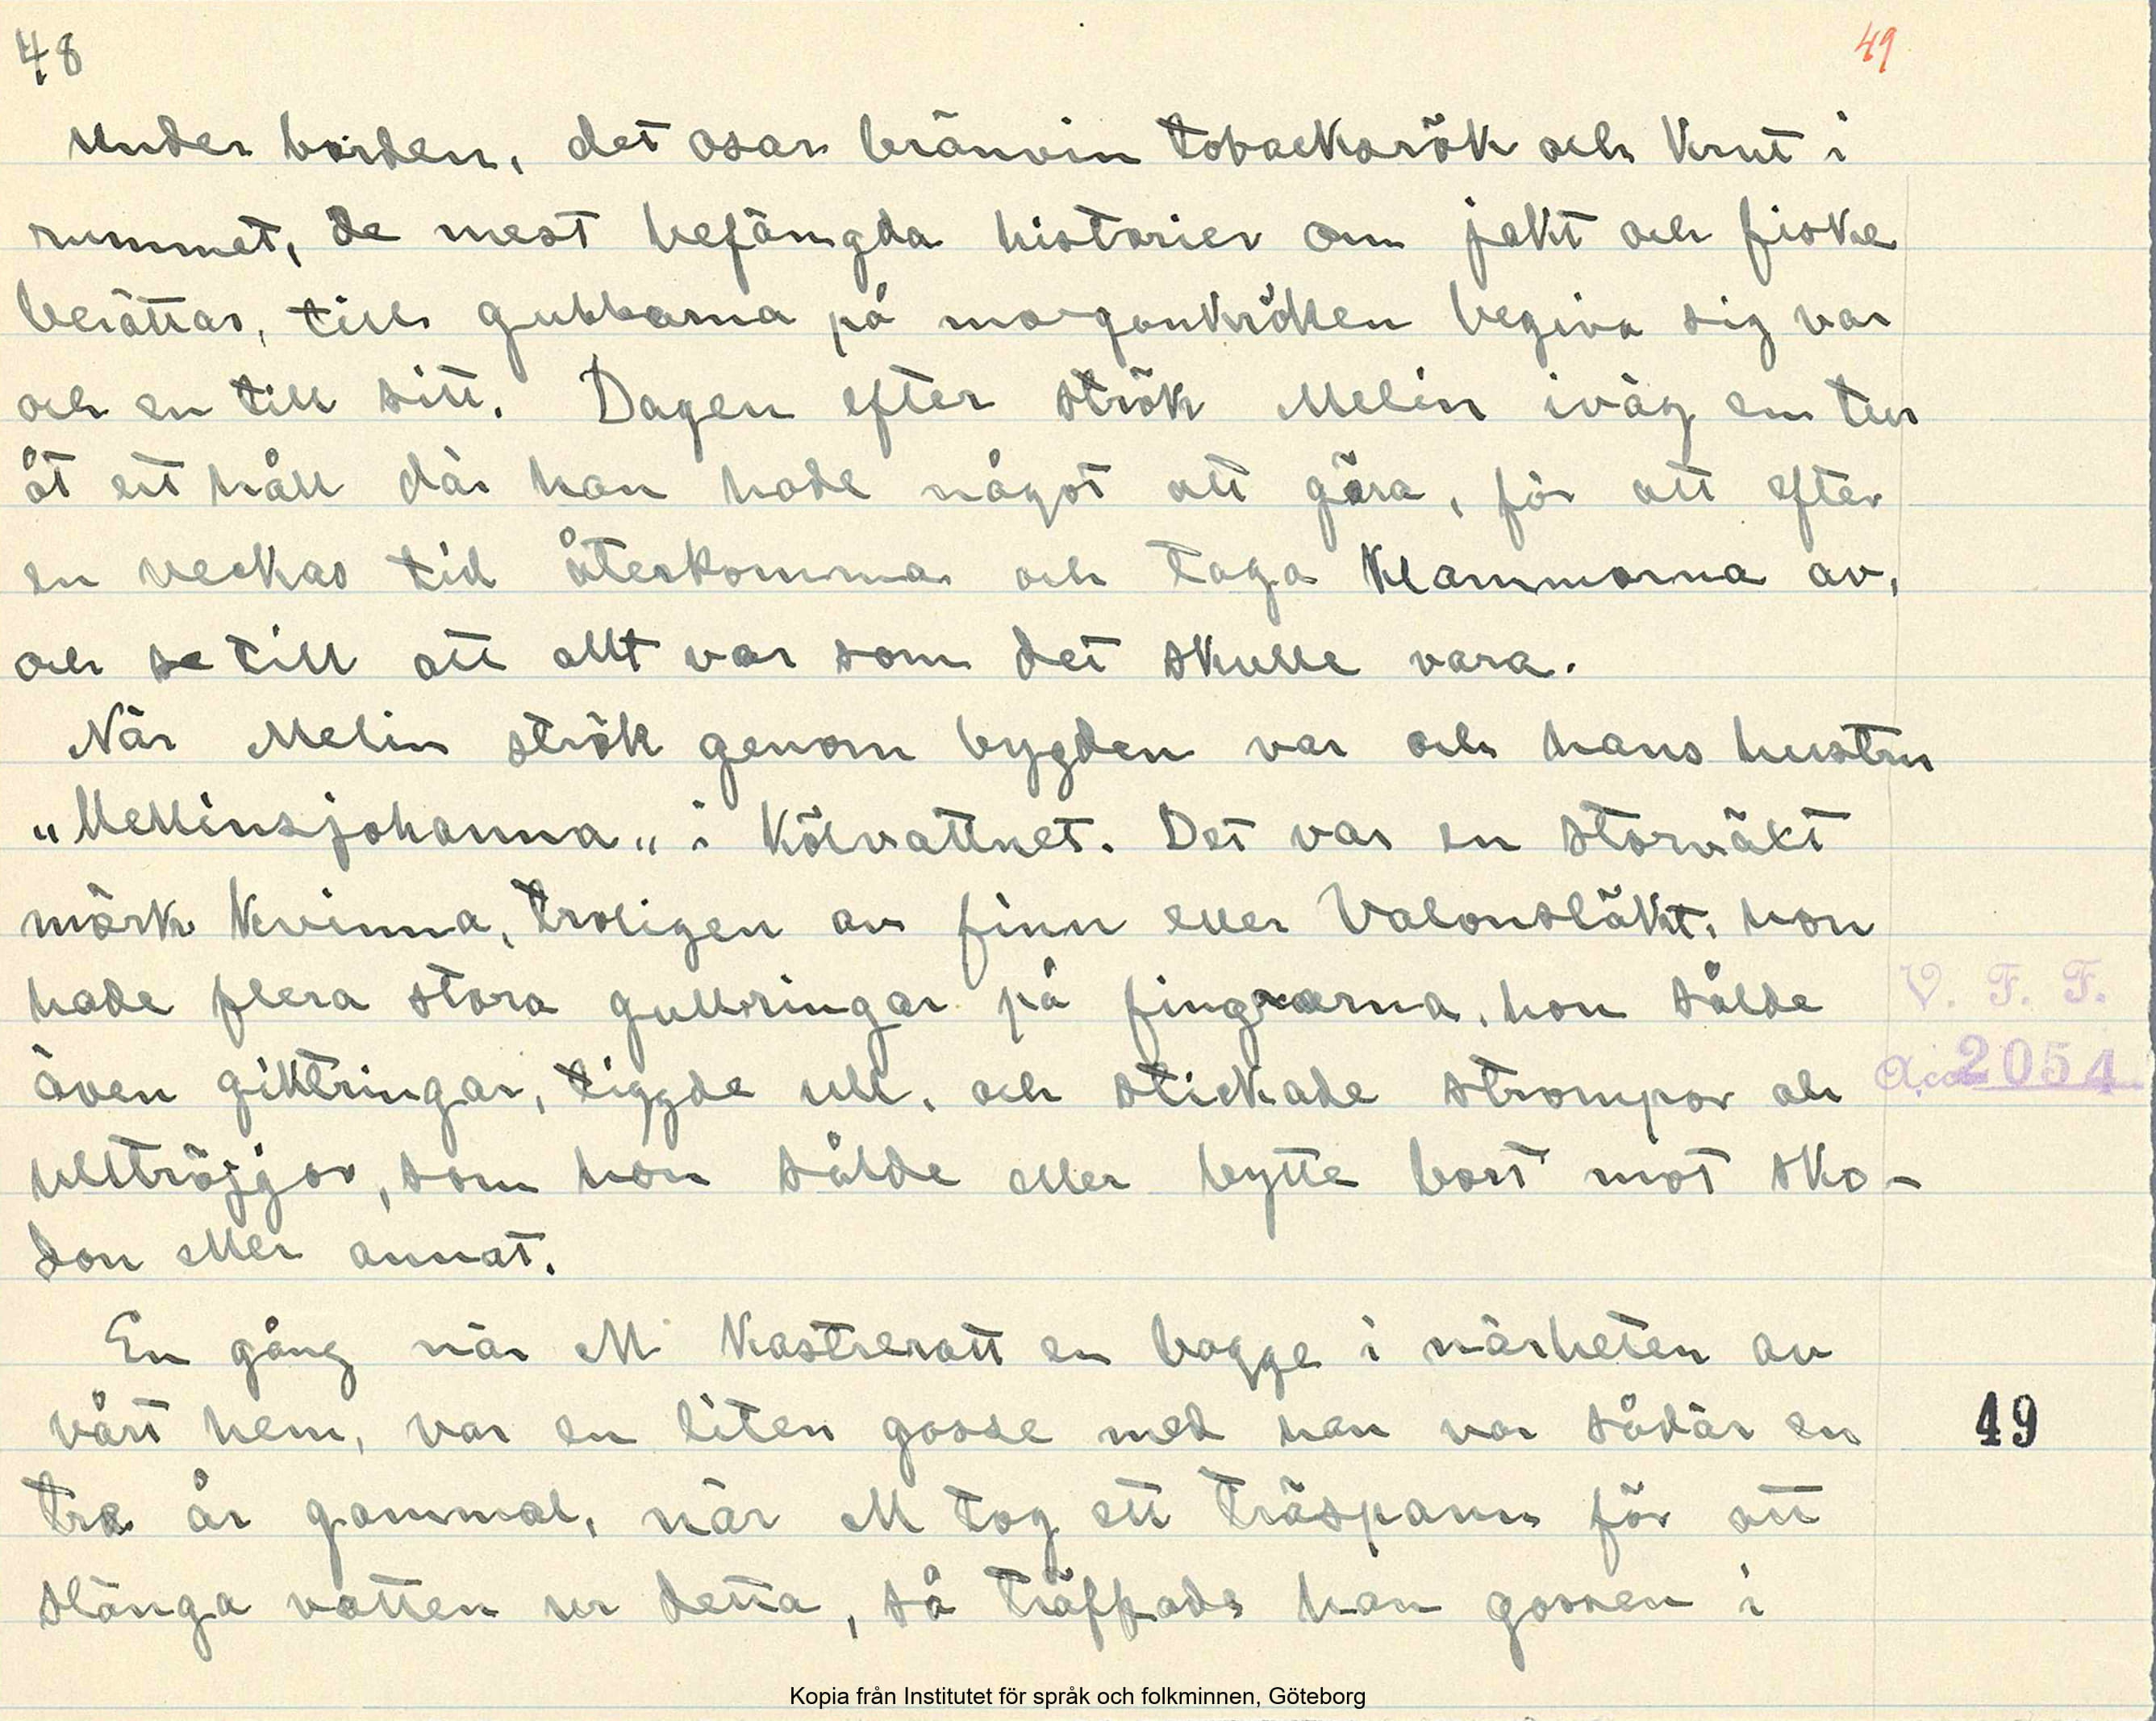 48
49
under borden, det osar bränvin tobacksrök och krut i
rummet, de mest befängda historier om jakt och fiske
berättas, tills gubbarna på morgonkröken begiva sig var
och en till sitt. Dagen efter strök Melin iväg en tur
åt ett håll där han hade något att göra, för att efter
en veckas tid återkomma och taga klammorna av,
och se till att allt var som det skulle vara.
När Melin strök genom bygden var och hans hustru
„Mellinsjohanna„ i kölvattnet. Det var en storväxt
mörk kvinna, troligen av finn eller Valonsläkt, hon
hade flera stora gullringar på fingrarna, hon sålde
även giktringar, tiggde ull, och stickade strumpor och
ulltröjjor, som hon sålde eller bytte bort mot sko-
don eller annat.
V. F. F.
Acc. 2054
En gång när M kastreratt en bagge i närheten av
vårt hem, var en liten gosse med han var sådär en
tre år gammal, när M tog ett träspann för att
slänga vatten ur detta, så träffade han gossen i
49
Kopia från Institutet för språk och folkminnen, Göteborg